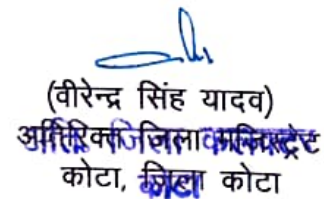 (वीरेन्द्र सिंह यादव)
अतिरिक्त जिला मजिस्ट्रेट
कोटा, जिला कोटा